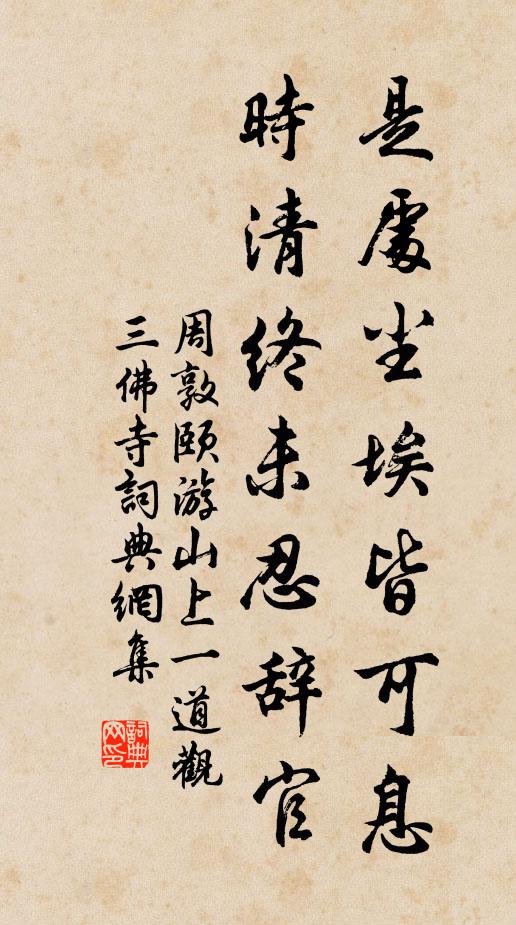 是處塵埃皆可息
時清終未忍辞官
周敦頤游山上一道觀
三佛寺詞典網集
詞典
网印